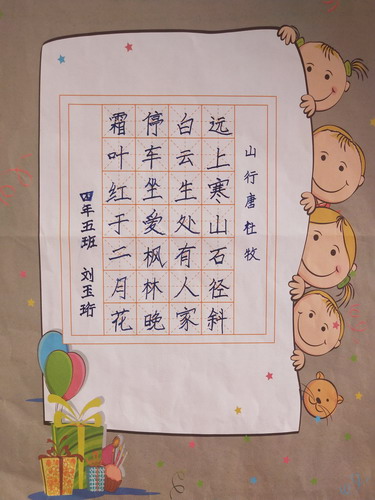 山行唐杜牧
远上寒山石径斜
白云生处有人家
停车坐爱枫林晚
霜叶红于二月花
四年五班 刘玉珩